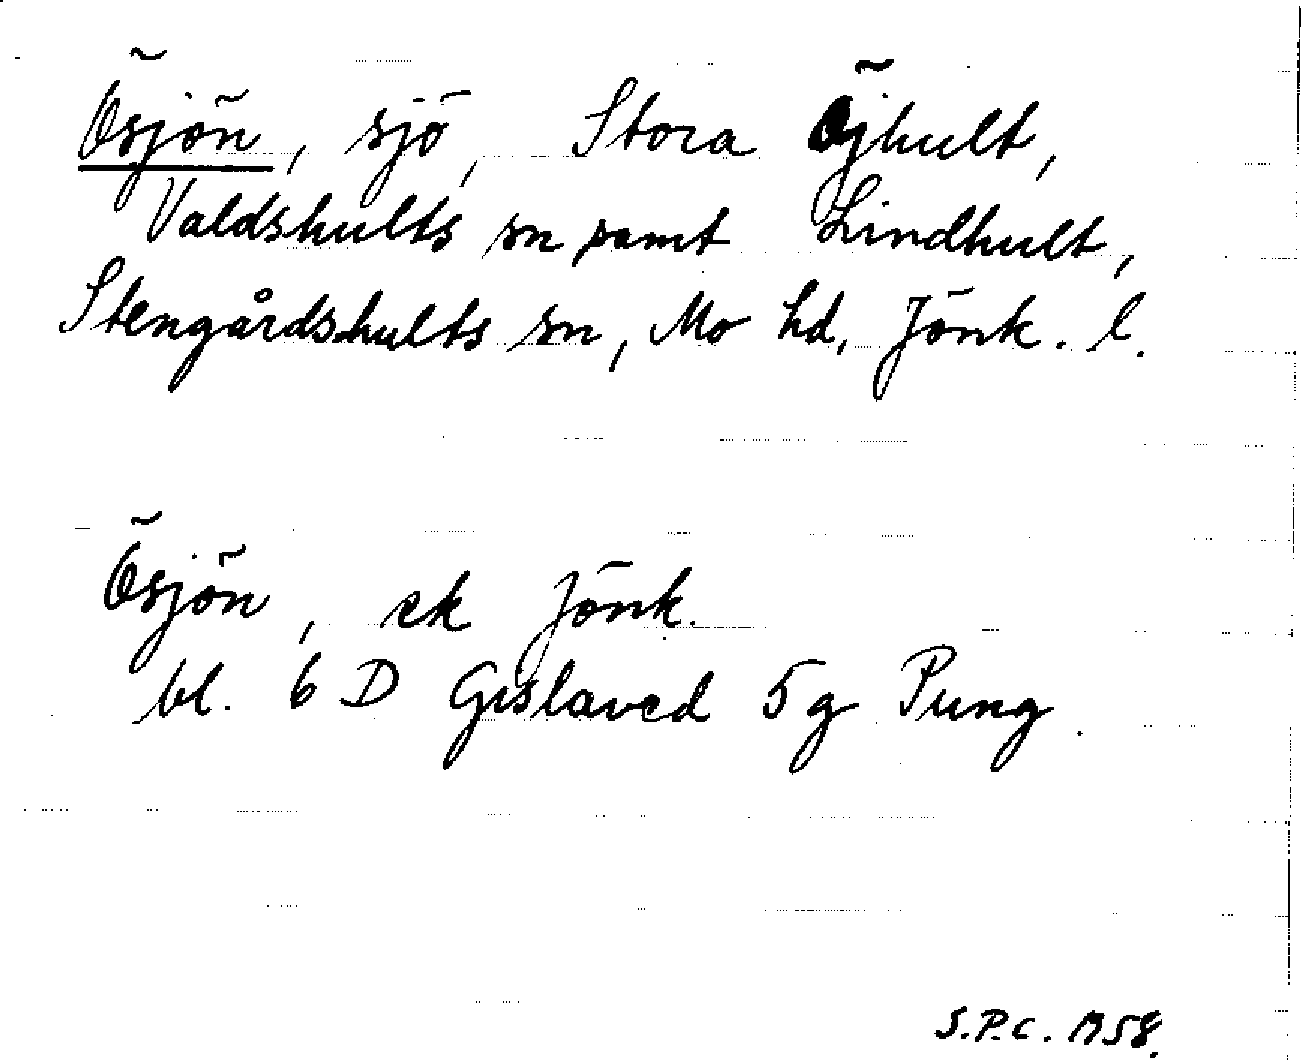 Ösjön, sjö, Stora Öjhult,
Valdshults sn samt Lindhult,
Stengårdshults sn, Mo hd, Jönk. l.
Ösjön, ek Jönk.
bl. 6 D Gislaved 5 g Pung.
S.P.C. 1958.